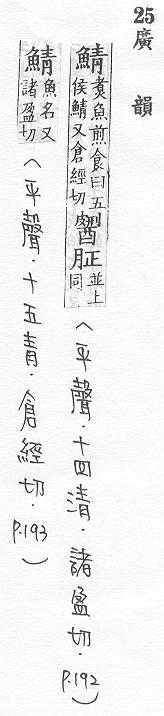 25 廣韻
鯖 煑魚煎食曰五侯鯖又倉經切 並上同 〈平聲．十四清．諸盈切．P.192）
鯖 魚名又諸盈切 〈平聲．十五青．倉經切．P.193）